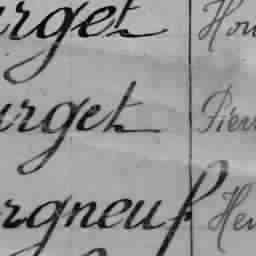 urget Hon
urget Pierr
rgneuf Hen